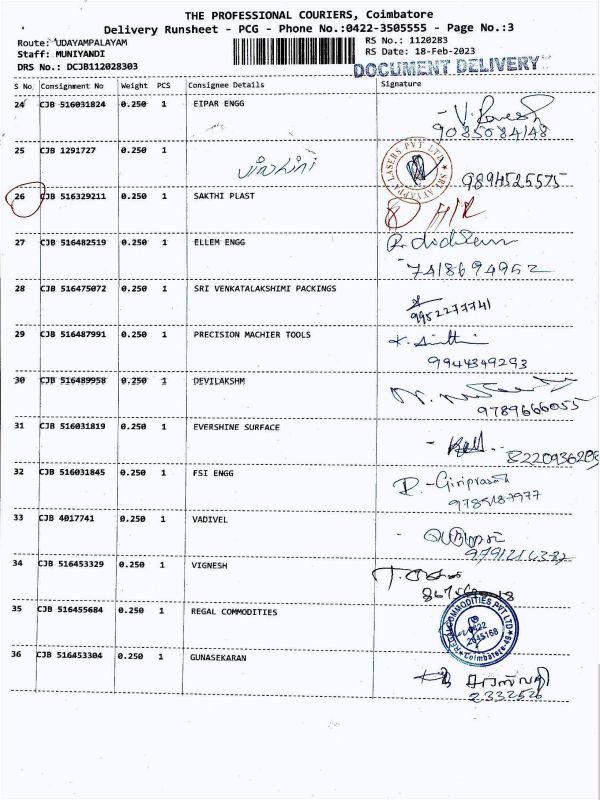 THE PROFESSIONAL COURIERS, Coimbatore
Delivery Runsheet - PCG - Phone No.:0422-3505555 - Page No.:3
Route: UDAYAMPALAYAM
RS No.: 1120283
Staff: MUNIYANDI
RS Date: 18-Feb-2023
DRS No.: DCJB112028303
DOCUMENT DELIVERY
S No Consignment No Weight PCS Consignee Details Signature
24 CJB 516031824 0.250 1 EIPAR ENGG
9085084148
25 CJB 1291727 0.250 1
9894525575
26 CJB 516329211 0.250 1 SAKTHI PLAST
27 CJB 516482519 0.250 1 ELLEM ENGG
7418694952
28 CJB 516475072 0.250 1 SRI VENKATALAKSHIMI PACKINGS
9952277741
29 CJB 516487991 0.250 1 PRECISION MACHIER TOOLS
9944349293
30 CJB 516489958 0.250 1 DEVILAKSHM
9789666055
31 CJB 516031819 0.250 1 EVERSHINE SURFACE
8220936208
32 CJB 516031845 0.250 1 FSI ENGG
R. Giriprasath
9785187977
33 CJB 4017741 0.250 1 VADIVEL
34 CJB 516453329 0.250 1 VIGNESH
35 CJB 516455684 0.250 1 REGAL COMMODITIES
REGAL COMMODITIES PVT LTD
0422
2645168
Coimbatore
36 CJB 516453304 0.250 1 GUNASEKARAN
சரஸ்வதி
2332526